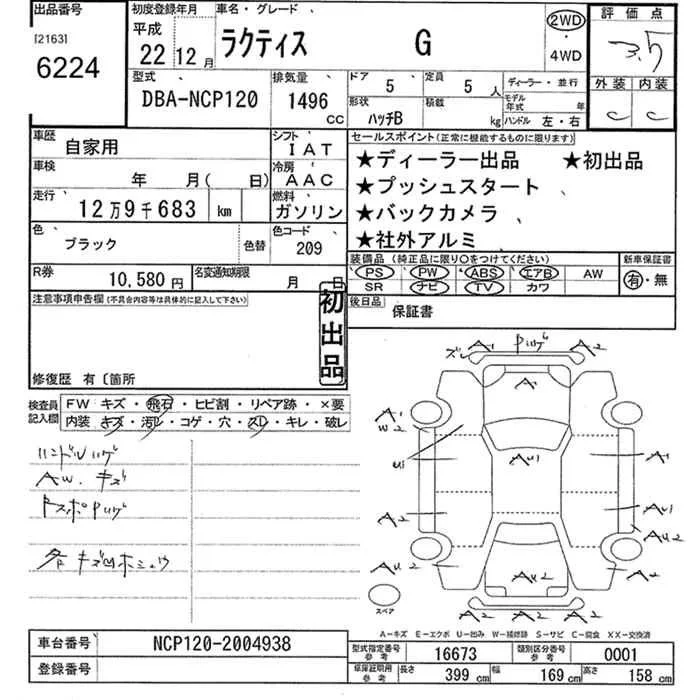 出品番号
[2163]
6224
初度登録年月
平成
22 12月
車名・グレード
ラクティス G
2WD
・
4WD
評価点
3.5
外装 内装
C C
型式
DBA-NCP120
排気量
1496
CC
ドア
5
定員
5 人
形状
ハッチB
積載
kg
ディーラー・並行
モデル年式 年
ハンドル 左・右
車歴
自家用
シフト
IAT
車検
年 月( 日)
冷房
AAC
走行
12万9千683 km
燃料
ガソリン
色
ブラック
色替
色コード
209
R券
10,580円
名変通知期限
月 日
セールスポイント(正常に機能するものに限ります)
★ディーラー出品 ★初出品
★プッシュスタート
★バックカメラ
★社外アルミ
装備品(純正品に限り○をつけてください)
新車保証書
PS PW ABS エアB AW
SR ナビ TV カワ
有・無
後日品
保証書
注意事項申告欄(不具合内容等は具体的に記入して下さい)
初出品
修復歴 有〔箇所
検査員記入欄
FW キズ・飛石・ヒビ割・リペア跡・×要
内装 キズ・汚レ・コゲ・穴・スレ・キレ・破レ
ハンドルハゲ
AW. キズ
各キズ凹ホシュウ
A1 A2
A1
A1
W2
U1
AU1
A1
A2
AU1
AU2
AU2
AU2
AU2
A2 A2 A2
スペア
A-キズ E-エクボ U-凹み W-補修跡 S-サビ C-腐食 XX-交換済
車台番号
NCP120-2004938
登録番号
型式指定番号
参考
16673
類別区分番号
参考
0001
車庫証明用
参考
長さ 399 cm
幅 169 cm
高さ 158 cm